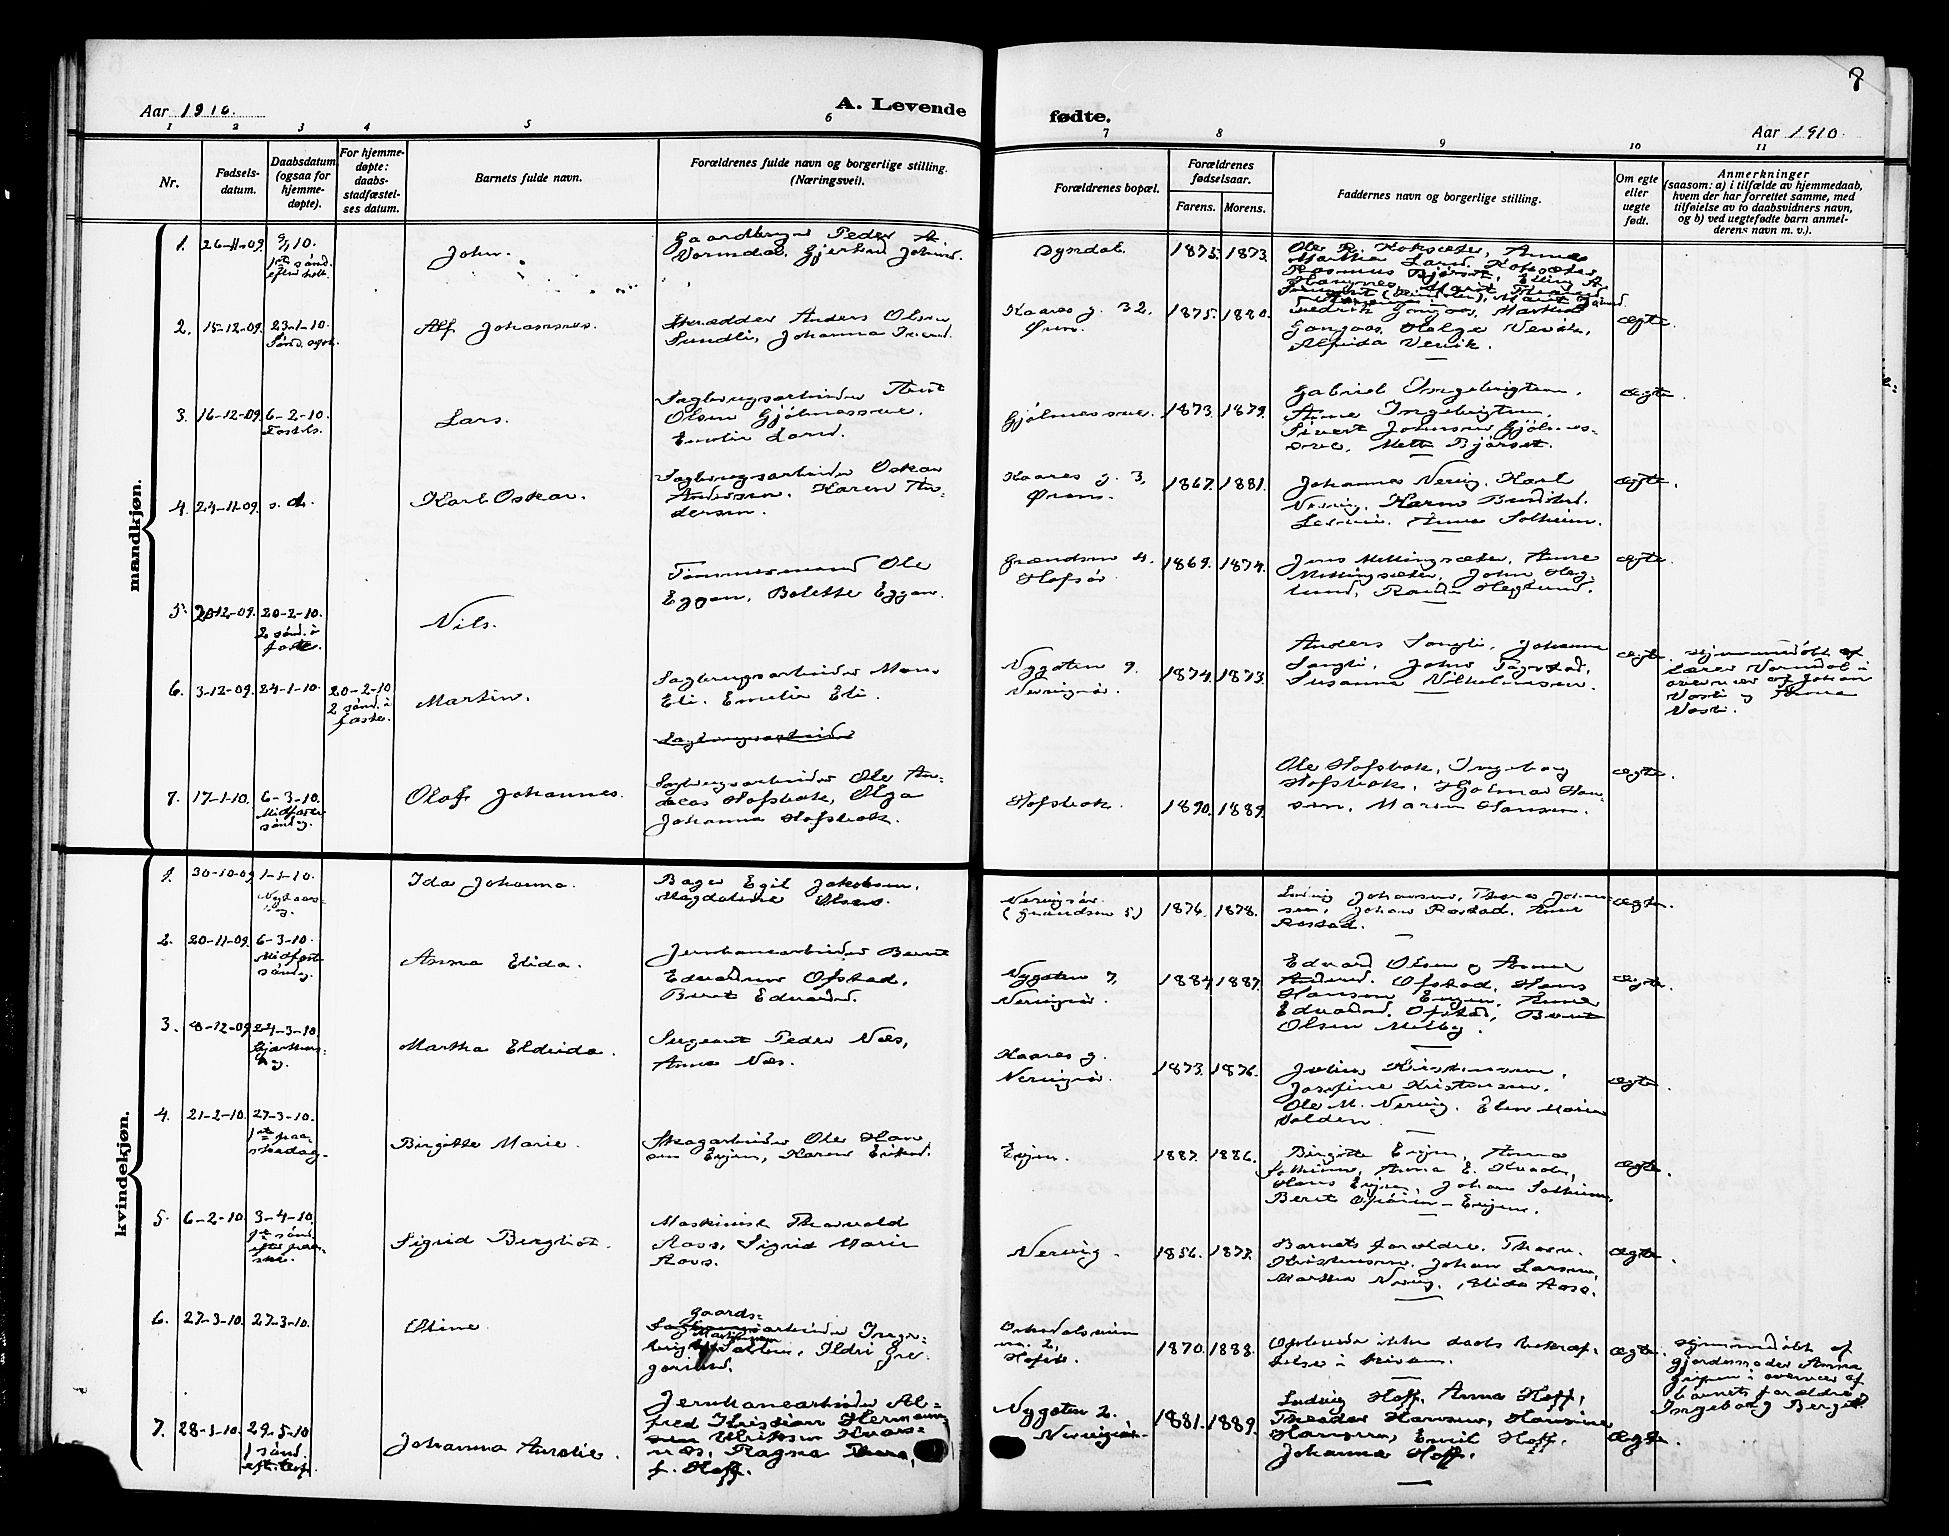 8
Aar 1910.
A. Levende
fødte.
Aar 1910.
1 2 3 4 5 6 7 8 9 10 11
Nr.
Fødsels-
datum.
Daabsdatum
(ogsaa for
hjemme-
døpte).
For hjemme-
døpte:
daabs-
stadfæstel-
ses datum.
Barnets fulde navn.
Forældrenes fulde navn og borgerlige stilling.
(Næringsvei).
Forældrenes bopæl.
Forældrenes
fødselsaar.
Farens. Morens.
Faddernes navn og borgerlige stilling.
Om egte
eller
uegte
født.
Anmerkninger
(saasom: a) i tilfælde av hjemmedaab,
hvem der har forrettet samme, med
tilføielse av to daabsvidners navn,
og b) ved uegtefødte barn anmel-
derens navn m. v.).
mandkjøn.
1. 26-11-09. 9/1 10.
1ste sønd.
John.
Gaardbruger Peder A
Vormdal,
Dyrdal.
1875. 1873.
Ole R. Anne
2. 15-12-09. 23-1-10.
Alf Johannes.
Skrædder Anders Olsen
Sundli, Johanna
Kaares g. 32
Ørens.
1875. 1880.
Helge
ægte.
3. 16-12-09. 6-2-10.
Fastels.
Lars.
Sagbrugsarbeider
Olsen Gjølmesøre.
Emelie Larsd.
Gjølmesøre.
1873. 1879.
Gabriel Ingebrigtsen,
Anne Ingebrigtsen,
Sivert Johnsen Gjølmes-
øre, Mette Bjørset.
ægte.
4. 24-11-09. s. d.
Karl Oskar.
Sagbrugsarbeider Oskar
Andersen. Karen An-
dersen.
Kaares g. 3,
Ørens.
1867. 1881.
Johanna Nervig, Karl
Nervig, Karen
Anna Solheim.
ægte.
5. 20-12-09. 20-2-10.
2 sønd. i
faste.
Nils.
Tømmermand Ole
Eggen, Bolette Eggen.
Grændsen 4.
Hofsør.
1869. 1874.
Jens Mellingsæter, Anne
Mellingsæter, John Heg-
lund, Heglund.
ægte.
6. 3-12-09. 24-1-10. 20-2-10
2 sønd. i
faste.
Martin.
Sagbrugsarbeider Mons
Eli. Emelie Eli.
Sagbrugsarbeider
Nygaten 9.
Nervigsør.
1874. 1873.
Anders Songli, Johanna
Songli, John
Susanna Vilhelmsen.
ægte.
Hjemmedøbt af
Lærer Vormdal i
overvær af Johan
og Anna
7. 17-1-10. 6-3-10.
Midfaste
søndag.
Olaf Johannes.
Sagbrugsarbeider Ole An-
dreas Hofsbak, Olga
Johanna Hofsbak.
Hofsbak.
1890. 1889.
Ole Hofsbak, Ingeborg
Hofsbak, Hjalmar Han-
sen, Maren Hansen.
ægte.
kvindekjøn.
1. 30-10-09 1-1-10.
Nytaars-
dag.
Ida Johanna.
Bager Egil Jakobsen,
Magdalene Olsen.
Nervigsør.
(Grændsen 5.)
1876. 1878.
Ludvig Johansen, Johan-
sen, Johan Rostad, Anne
Rostad.
ægte.
2. 20-11-09. 6-3-10.
Midfast
søndag.
Anna Elida.
Jernbanearbeider Bernt
Eduardsen Ofstad,
Beret Eduardsd.
Nygaten 7,
Nervigsør.
1884. 1887.
Eduard Olsen og Anne
Andersd. Ofstad, Hans
Hansen Evjen, Anne
Eduardsd. Ofstad, Bernt
Olsen Melby.
ægte.
3. 8-12-09. 24-3-10.
Skjærthors-
dag.
Martha Eldrida.
Sergeant Peder Næs,
Anna Næs.
Kaares g.
Nervigsør.
1873. 1876.
Julius Kristensen,
Josefine Kristensen.
Ole M. Nervig. Elen Marie
Volden.
ægte.
4. 21-2-10. 27-3-10.
1ste paa-
skedag.
Birgitte Marie.
Skogarbeider Ole Han-
sen Evjen, Karen
Evjen.
1887. 1886.
Birgitte Evjen, Anna
Solheim, Anna E.
Hans Evjen, Johan Solheim,
Beret Evjen.
ægte.
5. 6-2-10. 3-4-10.
1ste sønd.
efter paa-
ske.
Sigrid Bergliot.
Maskinist Thorvald
Aass, Sigrid Marie
Aass.
Nervig.
1856. 1873.
Barnets forældre, Thora
Kristensen, Johan Larsen,
Martha Nervig, Elida Aass.
ægte.
6. 27-3-10. 27-3-10.
Oline.
gaards-
arbeider Inge-
brigt Ildri Gre-
goriusd.
Orkedalsveien
2,
1870. 1888.
Oplevede ikke daabs bekræf-
telse i kirken.
ægte.
Hjemmedøbt af
gjordemoder Anna
i overvær af
barnets forældre
Ingeborg Berget
7. 28-1-10. 29-5-10
1 sønd.
Johanna Aurelie.
Jernbanearbeider Al-
fred Kristian Herman-
sen Ulriksen
Ragna Thora,
f. Hoff.
Nygaten 2.
Nervigsør.
1881. 1889.
Ludvig Hoff, Anna Hoff,
Theodor Hansen, Hansine
Hansen, Emil Hoff,
Johanna Hoff.
ægte.